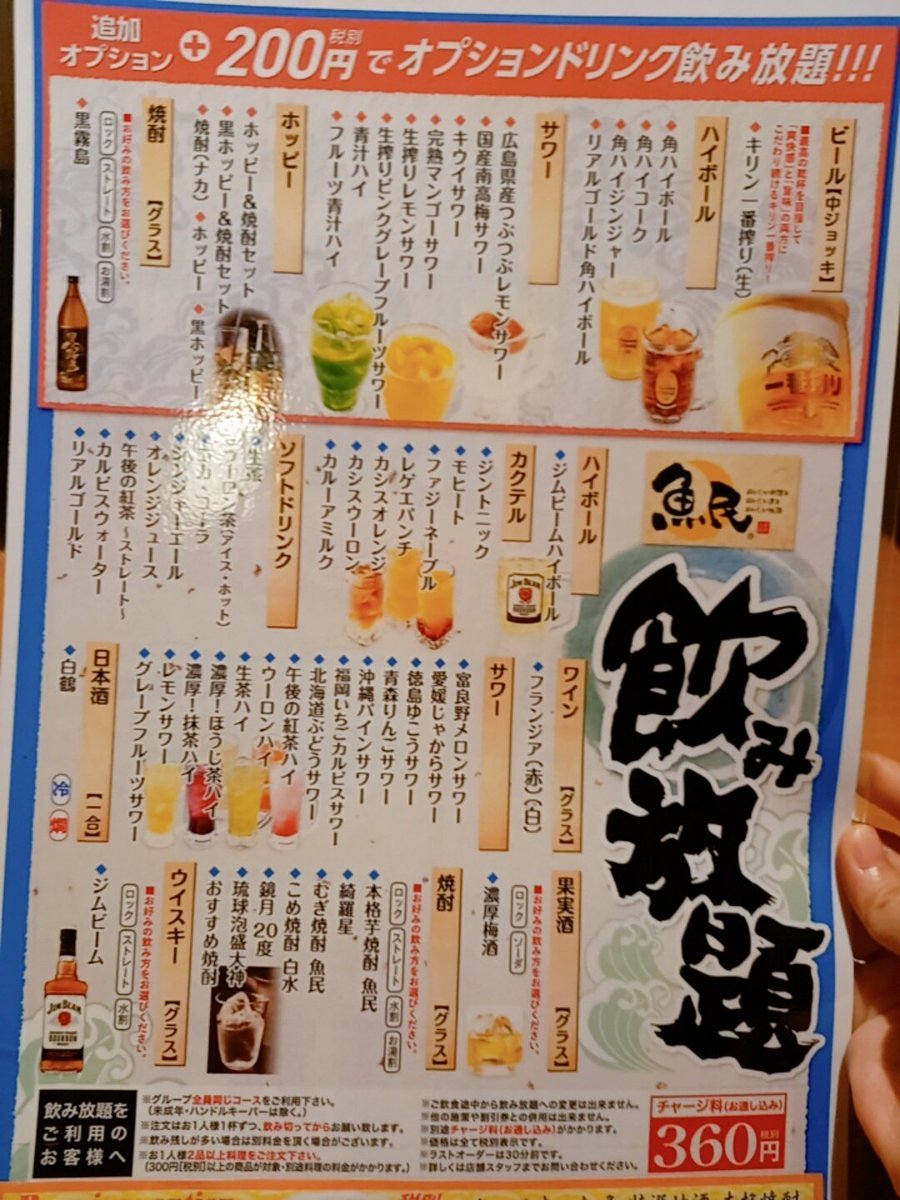 追加
オプション
+200円 税別 でオプションドリンク飲み放題!!!
ビール【中ジョッキ】
■最高の乾杯を目指して
「爽快感」と「旨味」の両方に
こだわり続けるキリン一番搾り!
◆キリン一番搾り(生)
ハイボール
◆角ハイボール
◆角ハイコーク
◆角ハイジンジャー
◆リアルゴールド角ハイボール
サワー
◆広島県産つぶつぶレモンサワー
◆国産南高梅サワー
◆キウイサワー
◆完熟マンゴーサワー
◆生搾りレモンサワー
◆生搾りピンクグレープフルーツサワー
◆青汁ハイ
◆フルーツ青汁ハイ
ホッピー
◆ホッピー&焼酎セット
◆黒ホッピー&焼酎セット
◆焼酎(ナカ) ◆ホッピー ◆黒ホッピー
焼酎【グラス】
■お好みの飲み方をお選びください。
ロック ストレート 水割 お湯割
◆黒霧島
一番搾り
魚民
飲み放題
ハイボール
◆ジムビームハイボール
カクテル
◆ジントニック
◆モヒート
◆ファジーネーブル
◆レゲエパンチ
◆カシスオレンジ
◆カシスウーロン
◆カルーアミルク
JIM BEAM
ソフトドリンク
◆生茶
ウーロン茶(アイス・ホット)
コカ・コーラ
◆ジンジャーエール
◆オレンジジュース
◆午後の紅茶 ~ストレート~
◆カルピスウォーター
◆リアルゴールド
ワイン【グラス】
◆フランジア(赤)(白)
サワー
◆富良野メロンサワー
◆愛媛じゃからサワー
◆徳島ゆこうサワー
◆青森りんごサワー
◆沖縄パインサワー
◆福岡いちごカルピスサワー
◆北海道ぶどうサワー
◆午後の紅茶ハイ
◆ウーロンハイ
◆生茶ハイ
◆濃厚!ほうじ茶ハイ
◆濃厚!抹茶ハイ
◆レモンサワー
◆グレープフルーツサワー
日本酒【一合】
◆白鶴
冷 燗
果実酒【グラス】
■お好みの飲み方をお選びください。
ロック ソーダ
◆濃厚梅酒
焼酎【グラス】
■お好みの飲み方をお選びください。
ロック ストレート 水割 お湯割
◆本格芋焼酎 魚民
◆綺羅星
◆むぎ焼酎 魚民
◆こめ焼酎 白水
◆鏡月20度
◆琉球泡盛大神
◆おすすめ焼酎
ウイスキー【グラス】
■お好みの飲み方をお選びください。
ロック ストレート 水割
◆ジムビーム
JIM BEAM
BOURBON
飲み放題を
ご利用の
お客様へ
※グループ全員同じコースをご利用下さい。
(未成年・ハンドルキーパーは除く。)
※注文はお1人様1杯ずつ、飲み切ってからお願い致します。
※飲み残しが多い場合は別料金を頂く場合がございます。
※お1人様2品以上料理をご注文下さい。
(300円[税別]以上の商品が対象・別途料理の料金がかかります。)
※ご飲食途中から飲み放題への変更は出来ません。
※他の施策や割引券との併用は出来ません。
※別途チャージ料(お通し込み)がかかります。
※価格は全て税別表示です。
※ラストオーダーは30分前です。
※詳しくは店舗スタッフまでお問い合わせください。
チャージ料(お通し込み)
360円 税別